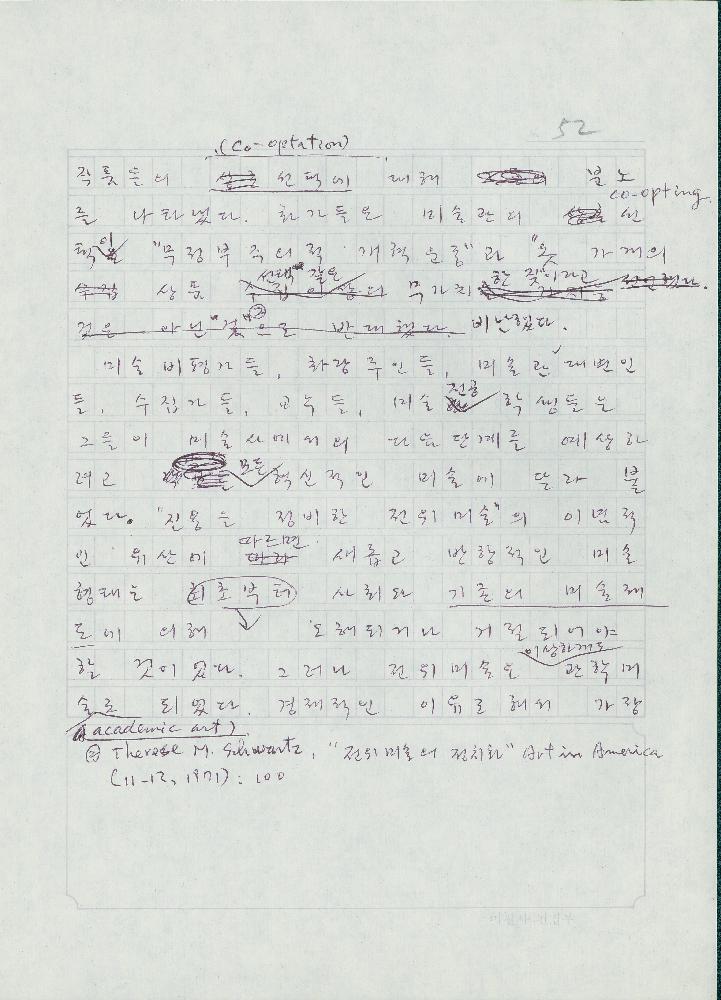 52
(co-optation)
작품들의 선택에 대해 분노
co-opting.
를 나타냈다. 화가들은 미술관의 선
택을 "무정부주의적 개혁운동"과 "옷 가게의
상품
비난했다.
미술 비평가들, 화랑 주인들, 미술관 대변인
들, 수집가들, 교수들, 미술 전공 학생들은
그들이 미술사에의 다음 단계를 예상하
려고 모든 혁신적인 미술에 달라 붙
었다. "진용을 정비한 전위미술"의 이념적
인 유산에 따르면 새롭고 반항적인 미술
형태는 최초부터 사회와 기존의 미술제
도에 의해 오해되거나 거절되어야
할 것이었다. 그러나 전위미술은 이상하게도 관학미
술로 되었다. 경제적인 이유로 해서 가장
(academic art)
Therese M. Schwartz, "전위미술의 정치화" Art in America
(11-12, 1971): 100